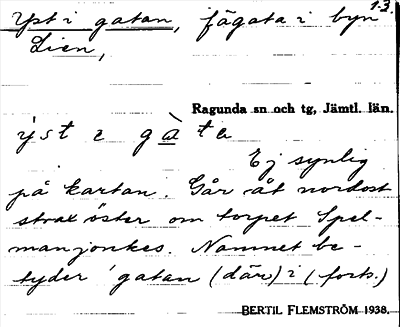 1-3.
Yst i gatan, fägata i byn
Lien,
Ragunda sn och tg, Jämtl. län.
ýst e gàta
Ej synlig
på kartan. Går åt nordost
strax öster om torpet Spel-
manjonkes. Namnet be-
tyder 'gatan (där) i (forts.)
BERTIL FLEMSTRÖM 1938.